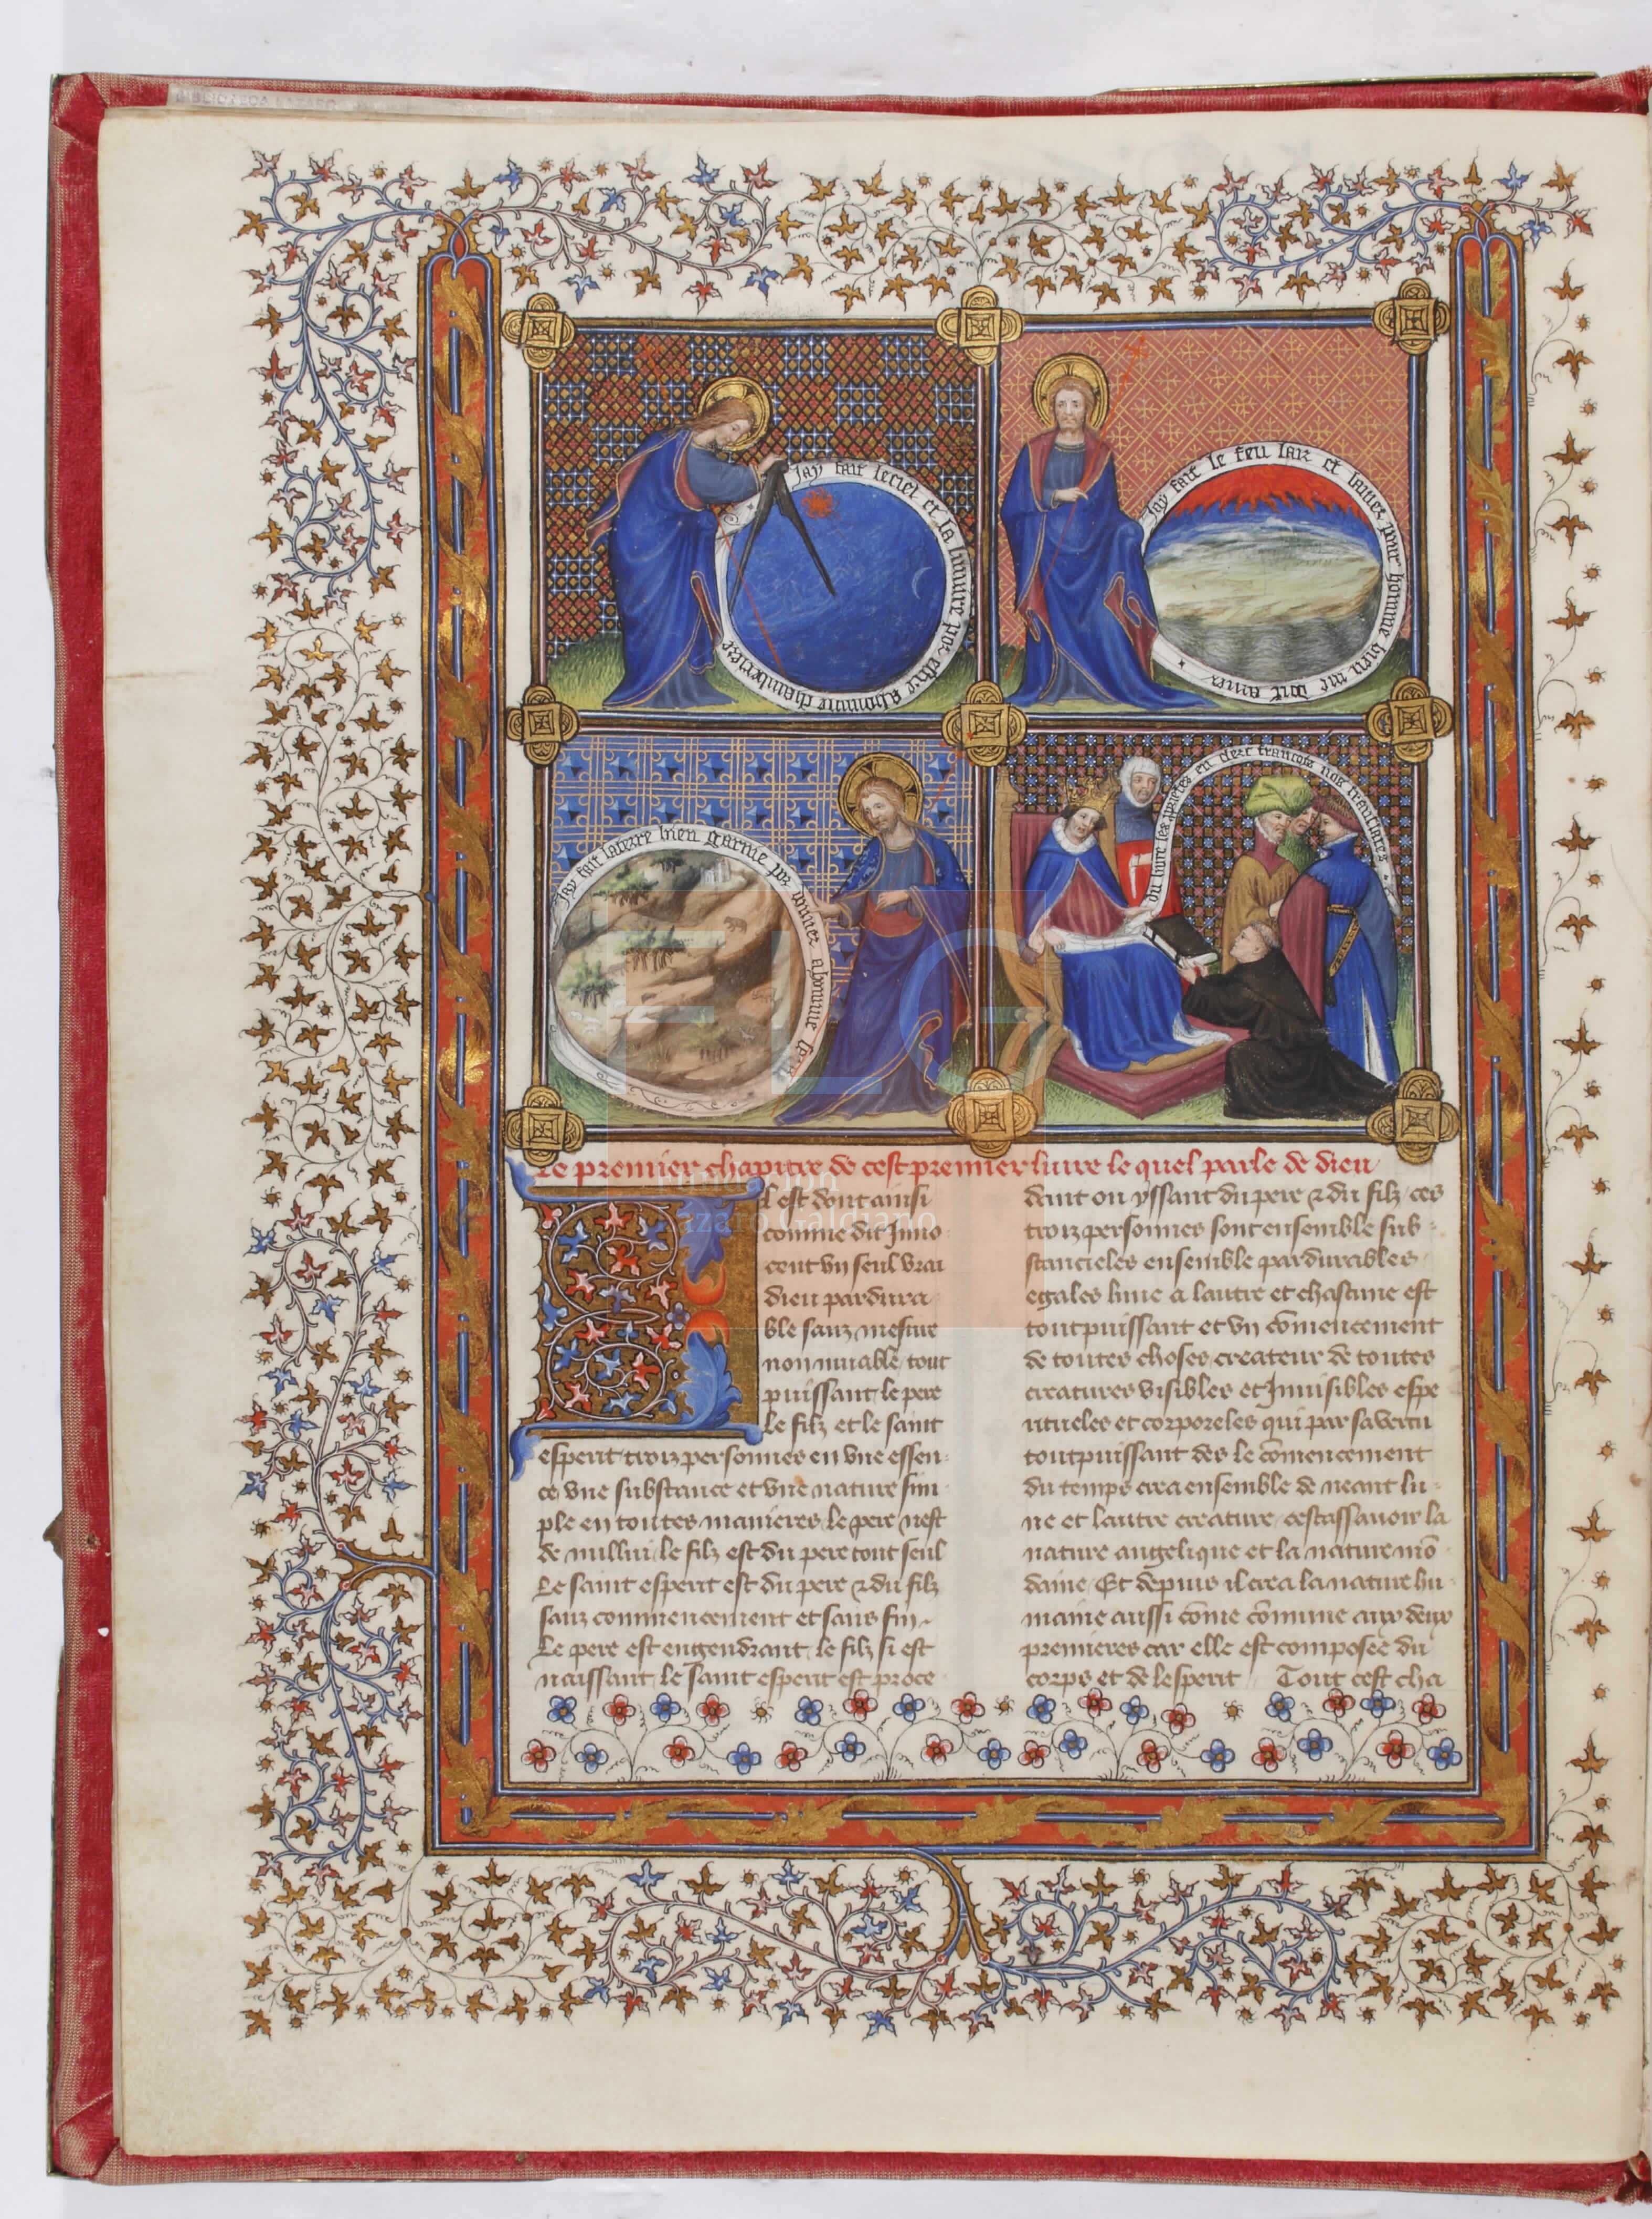 Jay fait leciel et la lumire por estre a homme chamberiere
Jay fait le feu lair et lauer pour homme bien me doit amer
Jay fait laterre bien garnie por donner a homme
du livre les proprietes en cler francois nos translates
Le premier chapitre de cest premier livre le quel parle de dieu
Il est dont ainsi
comme dit Inno
cent vn seul vrai
dieu pardura
ble sanz mesure
non muable tout
puissant le pere
le filz et le saint
esperit troiz personnes en vne essen
ce vne substance et vne nature sim
ple en toutes manieres le pere nest
de nullui le filz est du pere tout seul
Le saint esperit est du pere ⁊ du filz
sanz commencement et sans fin
Le pere est engendrant le filz si est
naissant le saint esperit est proce
dant ou yssant du pere ⁊ du filz ces
troiz personnes sont ensemble sub
stancieles ensemble pardurables
egales lune a lautre et chascune est
tout puissant et vn cōmencement
de toutes choses createur de toutes
creatures visibles et Inuisibles espe
ritueles et corporeles qui par sa vertu
tout puissant des le cōmencement
du temps crea ensemble de neant lu
ne et lautre creature cestassauoir la
nature angelique et la nature mō
daine Et depuis il crea la nature hu
maine aussi cōme cōmune aux deux
premieres car elle est composee du
corps et de lesperit Tout cest cha
FLG
Fundación
Lázaro Galdiano